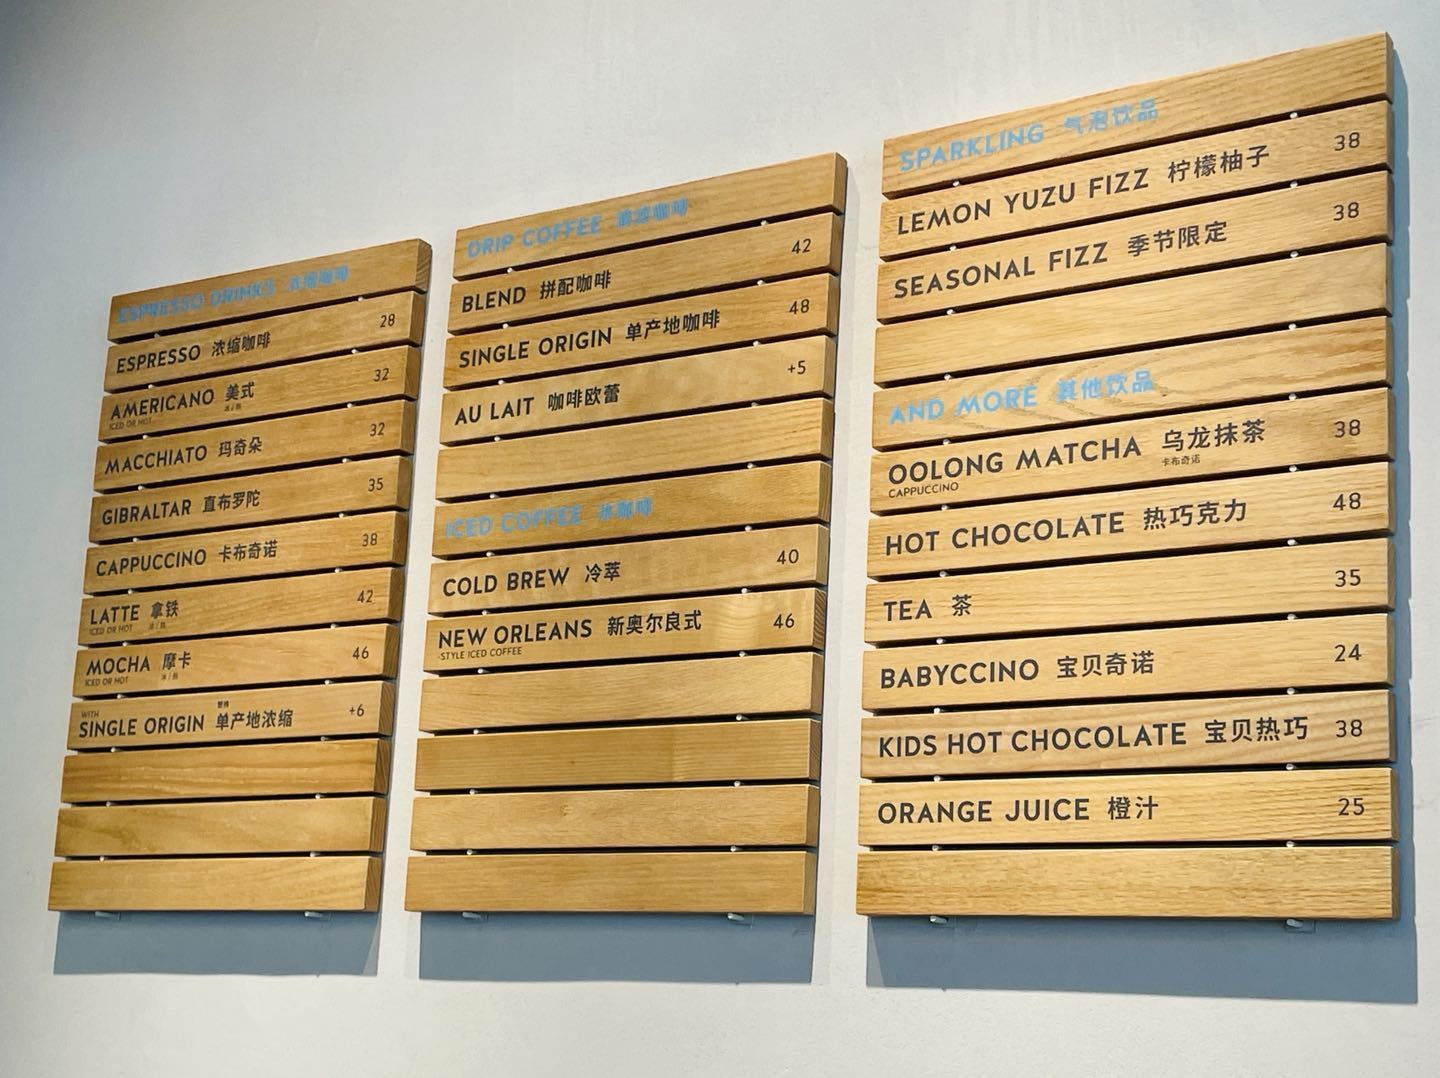 ESPRESSO DRINKS 浓缩咖啡
ESPRESSO 浓缩咖啡 28
AMERICANO 美式 32
ICED OR HOT 冰 / 热
MACCHIATO 玛奇朵 32
GIBRALTAR 直布罗陀 35
CAPPUCCINO 卡布奇诺 38
LATTE 拿铁 42
ICED OR HOT 冰 / 热
MOCHA 摩卡 46
ICED OR HOT 冰 / 热
WITH 替换
SINGLE ORIGIN 单产地浓缩 +6
DRIP COFFEE 滴滤咖啡
BLEND 拼配咖啡 42
SINGLE ORIGIN 单产地咖啡 48
AU LAIT 咖啡欧蕾 +5
ICED COFFEE 冰咖啡
COLD BREW 冷萃 40
NEW ORLEANS 新奥尔良式 46
-STYLE ICED COFFEE
SPARKLING 气泡饮品
LEMON YUZU FIZZ 柠檬柚子 38
SEASONAL FIZZ 季节限定 38
AND MORE 其他饮品
OOLONG MATCHA 乌龙抹茶 38
CAPPUCCINO 卡布奇诺
HOT CHOCOLATE 热巧克力 48
TEA 茶 35
BABYCCINO 宝贝奇诺 24
KIDS HOT CHOCOLATE 宝贝热巧 38
ORANGE JUICE 橙汁 25